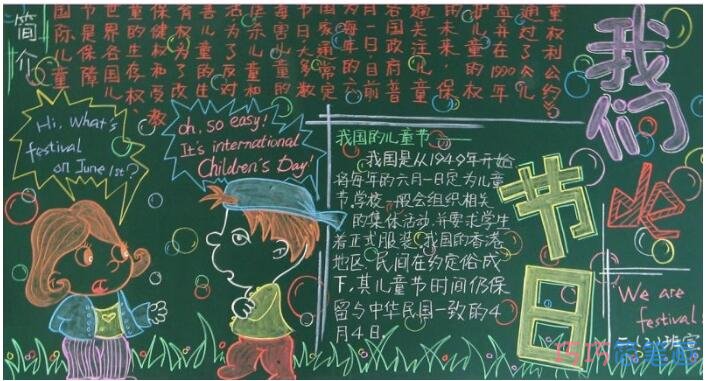 简介
国际儿童
节是保障
世界各国儿
童的生存权、
保健权和受教
育权为了改
善儿童的生
活为了反对
节日大多数
国家通常定
为每年的六
月一日,目前
各国政府普
遍关注儿童
的未来,保
护儿童的权
益并在1990年
通过了《儿
童权利公约》
Hi, What's
festival
on June 1st?
oh, so easy!
It's international
Children's Day!
我国的儿童节
我国是从1949年开始
将每年的六月一日定为儿童
节.学校一般会组织相关
的集体活动,并要求学生
着正式服装.我国的香港
地区,民间在约定俗成
下,其儿童节时间仍保
留与中华民国一致的4
月4日.
我们
的
节日
We are
festival!